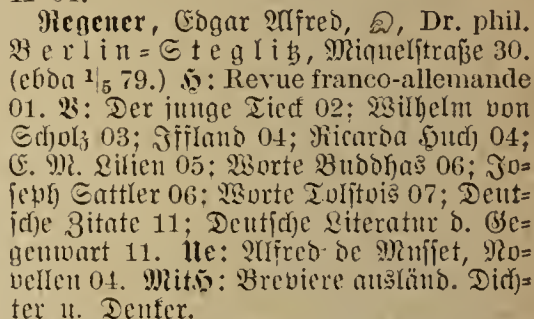 Regener, Edgar Alfred, Dr. phil.
Berlin=Steglitz, Miquelstraße 30.
(ebda 1|5 79.) H: Revue franco-allemande
01. B: Der junge Tieck 02; Wilhelm von
Scholz 03; Iffland 04; Ricarda Huch 04;
E. M. Lilien 05; Worte Buddhas 06; Jo=
seph Sattler 06; Worte Tolstois 07; Deut=
sche Zitate 11; Deutsche Literatur d. Ge=
genwart 11. Ue: Alfred de Musset, No=
vellen 04. MitH: Breviere ausländ. Dich=
ter u. Denker.